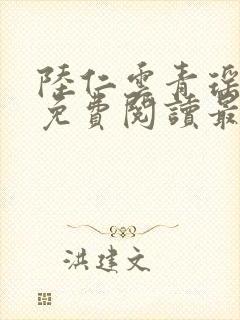 陸仁雲青瑶
免費閱讀最
洪建文